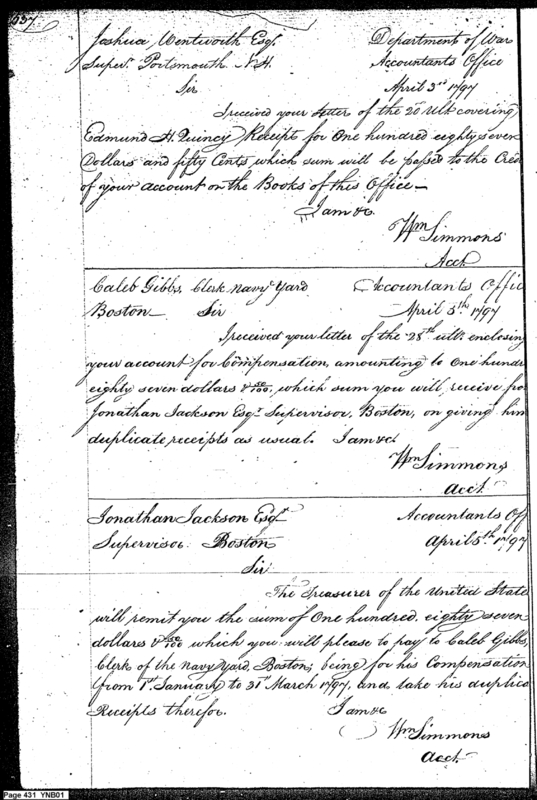 Joshua Wentworth Esqr. Department of War
Superr. Portsmouth N.H. Accountants Office
Sir April 3rd 1797
I received your letter of the 20 Ulto covering
Edmund H. Quincy Receipt for One hundred eighty seven
Dollars and fifty Cents, which sum will be passed to the Cred
of your account on the Books of this Office—
I am &c.
Wm Simmons
Acct.
Caleb Gibbs, Clerk navy Yard Accountants Offic
Boston Sir April 5th. 1797
I received your letter of the 28th ulto. enclosing
your account for Compensation, amounting to One hundr
eighty seven dollars & 50/100, which sum you will receive fro
Jonathan Jackson Esqr. Supervisor, Boston, on giving him
duplicate receipts as usual. I am &c
Wm Simmons
acct.
Jonathan Jackson Esqr. Accountants Off
Supervisor Boston April 5th 1797
Sir
The Treasurer of the United State
will remit you the sum of One hundred eighty seven
dollars & 50/100 which you will please to pay to Caleb Gibbs,
Clerk of the navy Yard, Boston; being for his Compensation
from 1st January to 31st March 1797, and take his duplica
Receipts therefor. I am &c
Wm. Simmons
acct.
Page 431 YNB01